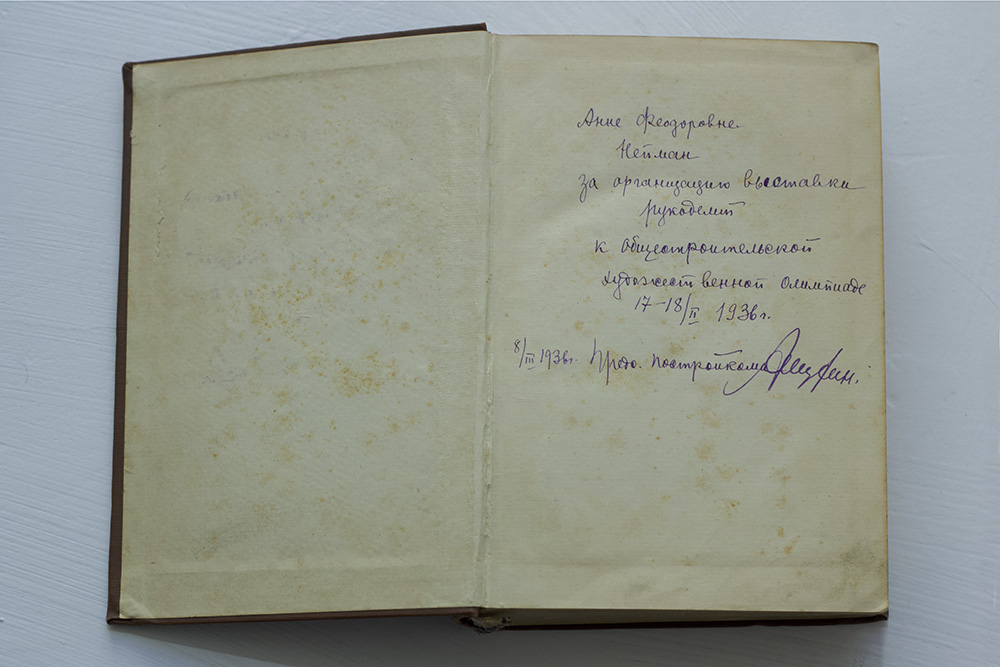 Анне Феодоровне
Нейман
за организацию выставки
рукоделий
к общестроительской
художественной олимпиаде
17–18/II 1936 г.
8/III 1936 г. Предс. постройкома